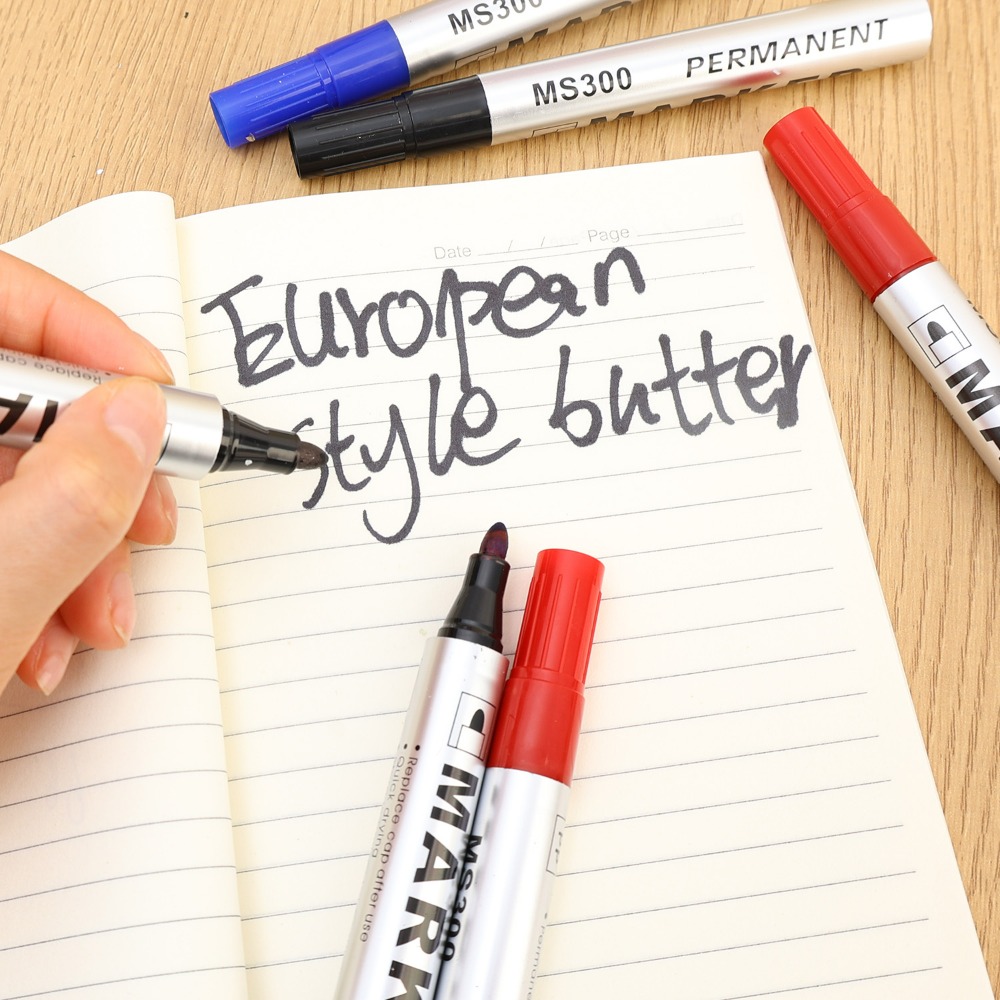 MS300
MS300 PERMANENT
MARKER
Date / / Page
European
style butter
Replace cap
MARK
• Replace cap after use
• Quick drying
MS300